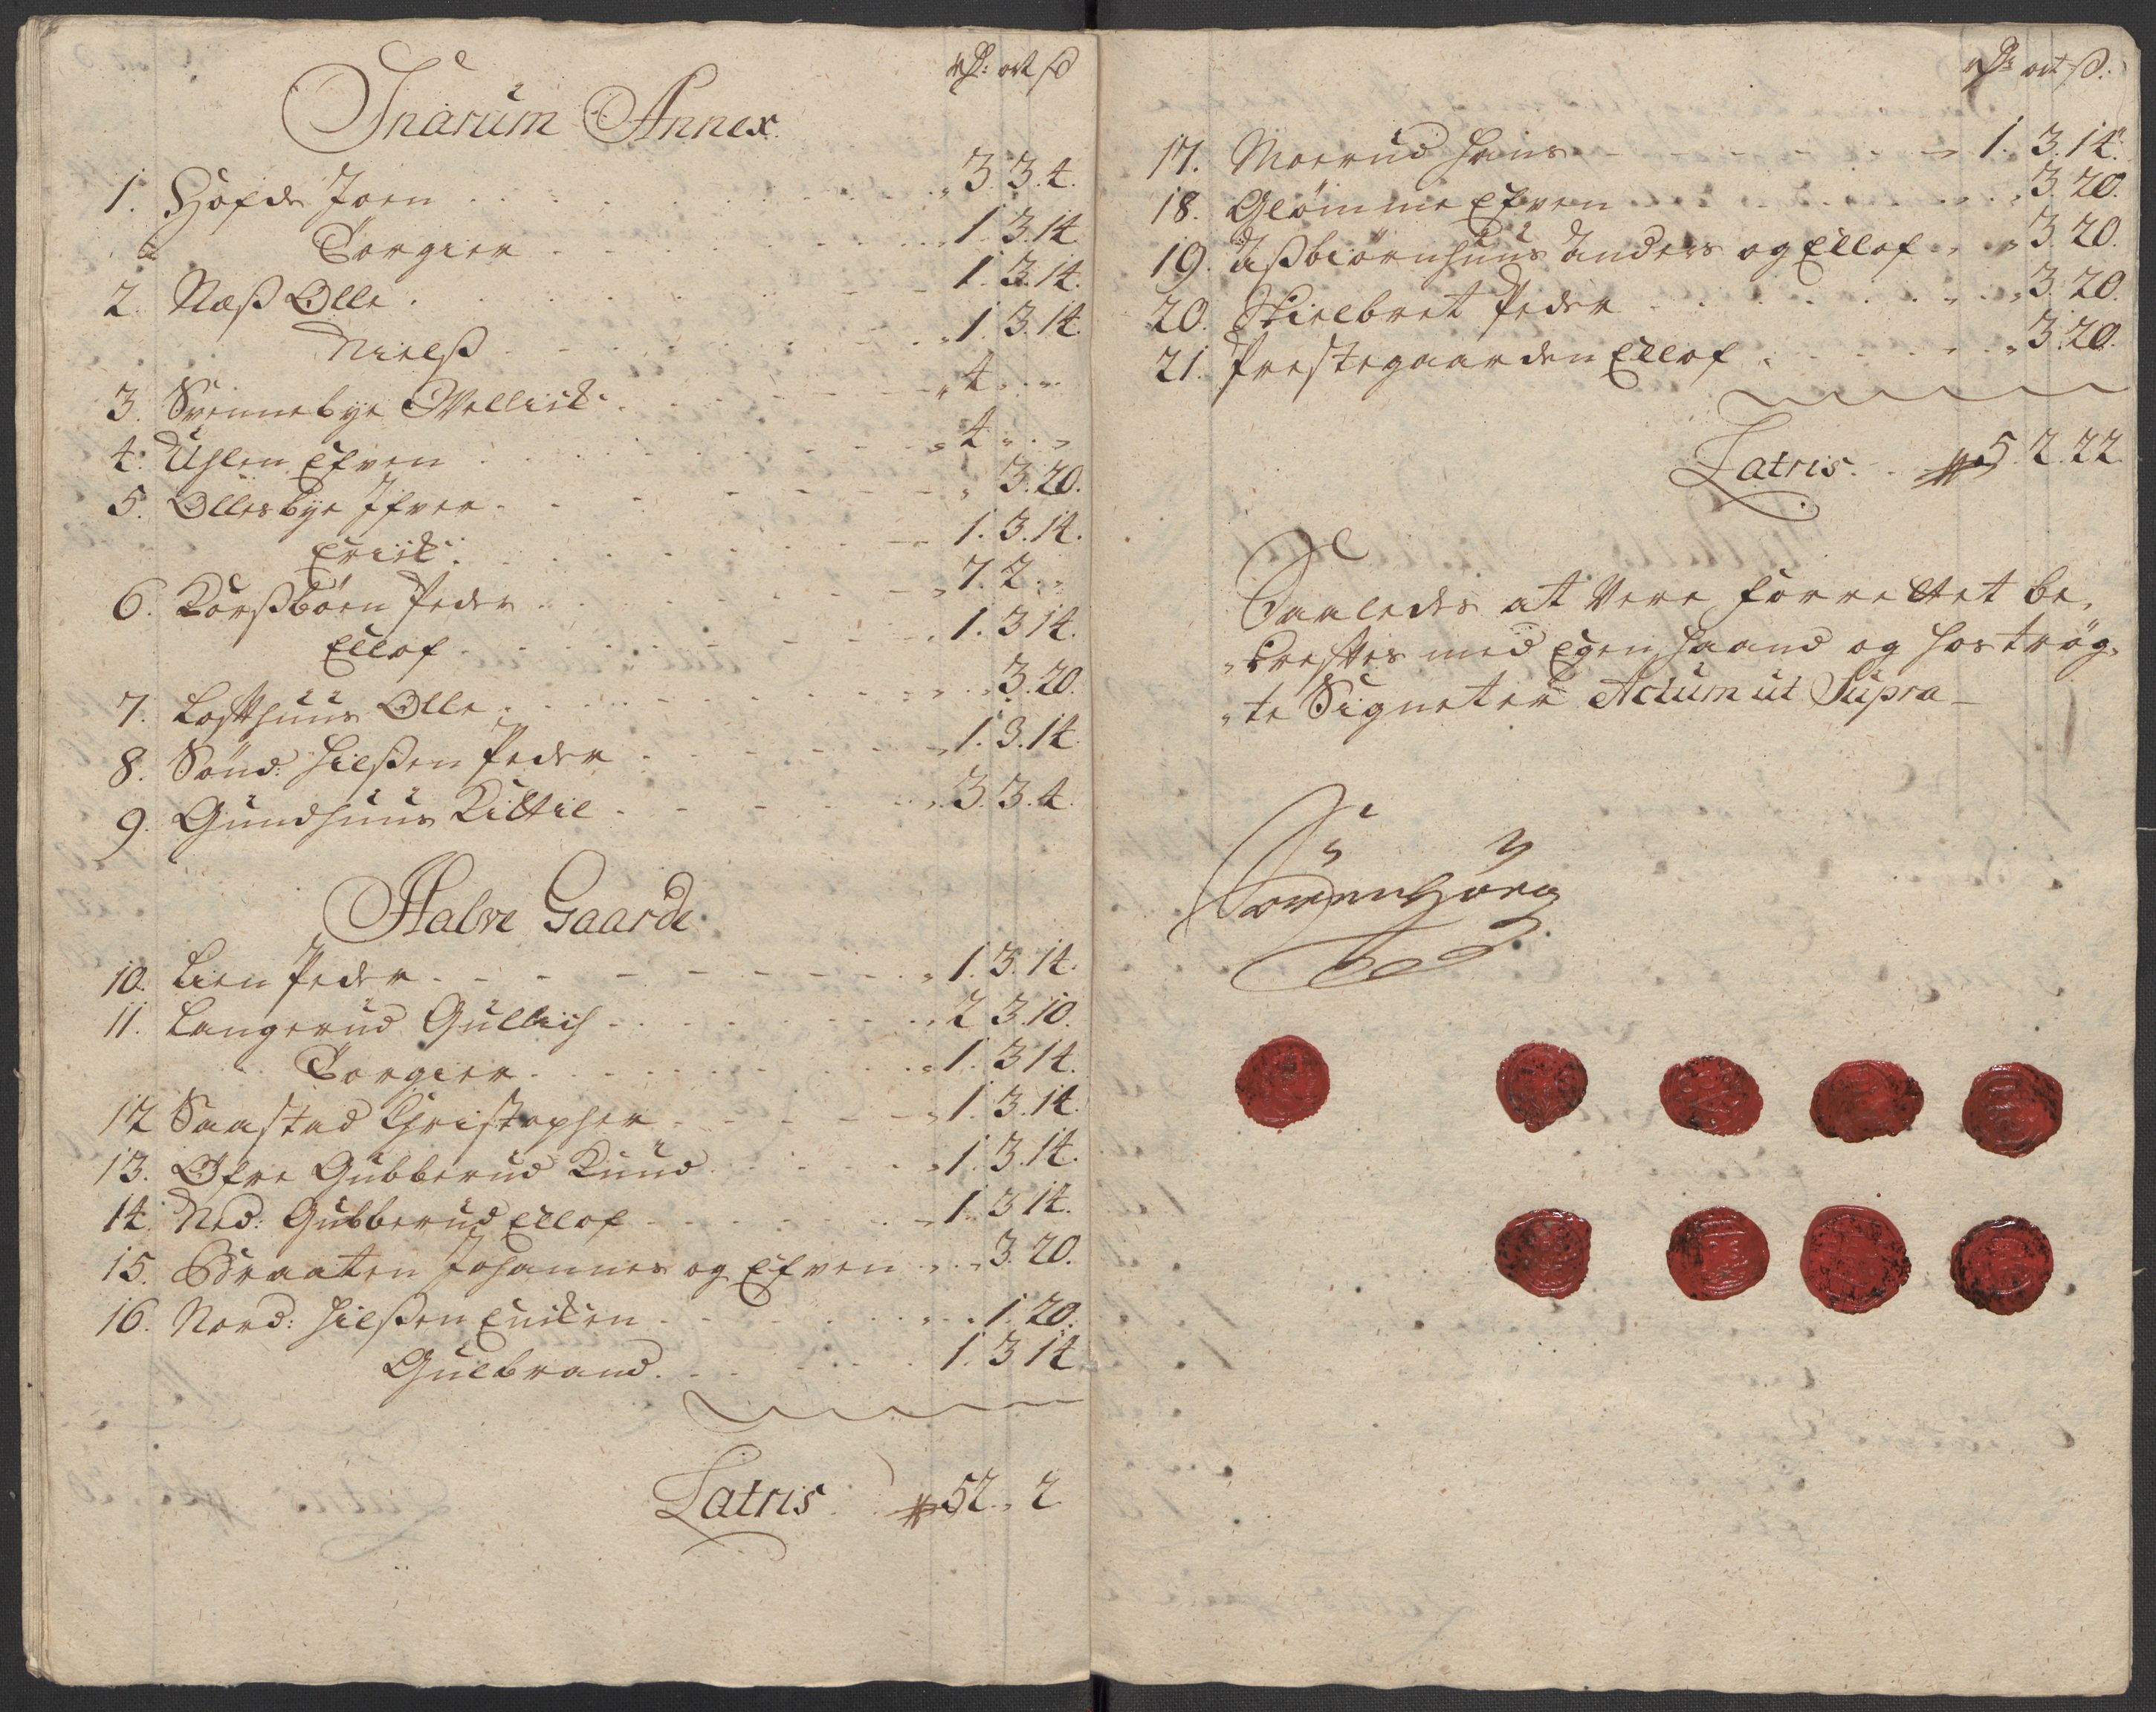 Snarum Annex.
rdr: ort ß
1. Hofde Joen . . . 3. 3. 4.
Torgier . . . 1. 3. 14.
2. Næß Olle . . . 1. 3. 14.
Nielß . . . 1. 3. 14.
3. Svennebye Wellick . . . 4. " "
4. Uhlen Efven . . . 4 " "
5. Ollesbye Ifver . . . 3. 20.
Erick . . . 1. 3. 14.
6. Korßböen Peder . . . 7. 2. "
Ellof . . . 1. 3 14.
7. Lofthuus Olle . . . 3. 20.
8. Sönd: Hilßen Peder . . . 1. 3. 14.
9. Gundhuus Kittil . . . 3. 3. 4.
Halve Gaarde.
10. Lien Peder . . . 1. 3. 14.
11. Langerud Gullich . . . 2 3. 10.
Torgier . . . 1. 3 14.
12 Saastad Christopher . . . 1. 3. 14.
13. Ofre Gubberud Knud . . . 1. 3. 14.
14. Ned: Gubberud Ellof . . . 1. 3 14.
15. Braaten Johannes og Efven . . . 3. 20.
16. Nord: Hilßen Enken . . . 1. 20.
Gulbrand . . . 1. 3 14
Latris 52. " 2
rdr ort ß:
17. Moerud Hans . . . 1. 3. 14.
18. Glömme Efven . . . 3. 20.
19. Aßbiörnhuus Anders og Ellof . . . 3. 20.
20. Skielbret Peder . . . 3. 20.
21. Prestegaarden Ellof . . . 3. 20.
Latris . . 5. 2. 22.
Saaledes at Vere forrettet be,
"kreftes med Egen Haand og hoströg,
"te Signeter Actum ut Supra